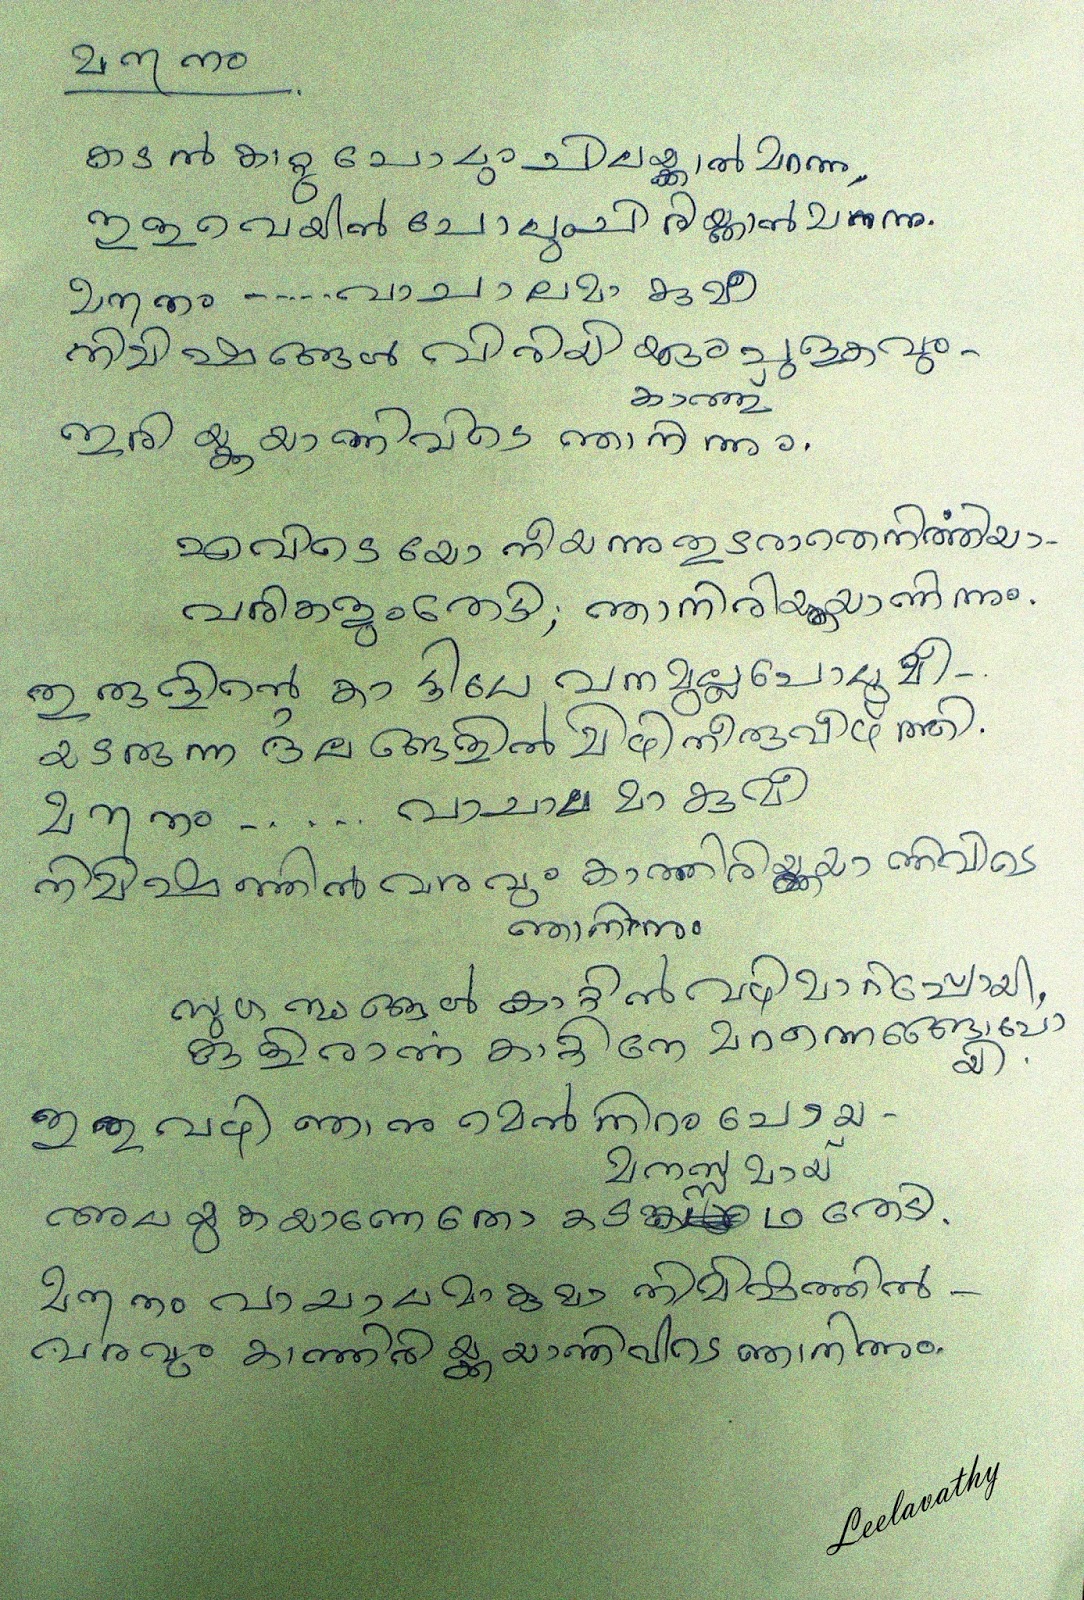 മൗനം
കടൽ കാറ്റു പോലും ചിലയ്ക്കാൻ മറന്നു,
ഇളവെയിൽ പോലുംചിരിയ്ക്കാൻ മറന്നു.
മൗനം -----വാചാലമാകുമീ
നിമിഷങ്ങൾ വിരിയിയ്ക്കും പുളകവും-
കാത്ത്
ഇരിയ്ക്കയാണിവിടെ ഞാനിന്നും.
എവിടെയോ നീയന്നുതുടരാതെനിർത്തിയാ-
വരികളുംതേടി; ഞാനിരിയ്ക്കയാണിന്നും.
ഇരുളിന്റെ കാട്ടിലെ വനമുല്ലപോലുമീ-
യടരുന്ന ദലങ്ങളിൽ മിഴിനീരുവീഴ്ത്തി.
മൗനം ----- വാചാലമാകുമീ
നിമിഷത്തിൻ വരവും കാത്തിരിയ്ക്കയാണിവിടെ
ഞാനിന്നും
സുഗന്ധങ്ങൾ കാറ്റിൻ വഴിമാറിപ്പോയി,
കുളിരാർന്ന കാറ്റിനോ മറന്നെങ്ങോപോ
യി.
ഇതുവഴി ഞാനുമെൻ നിറം പോയ-
മനസ്സുമായ്
അലയുകയാണേതോ കട തേടി.
മൗനം വാചാലമാകുമാ നിമിഷത്തിൽ-
വരവും കാത്തിരിയ്ക്കയാണിവിടെ ഞാനിന്നും.
Leelavathy